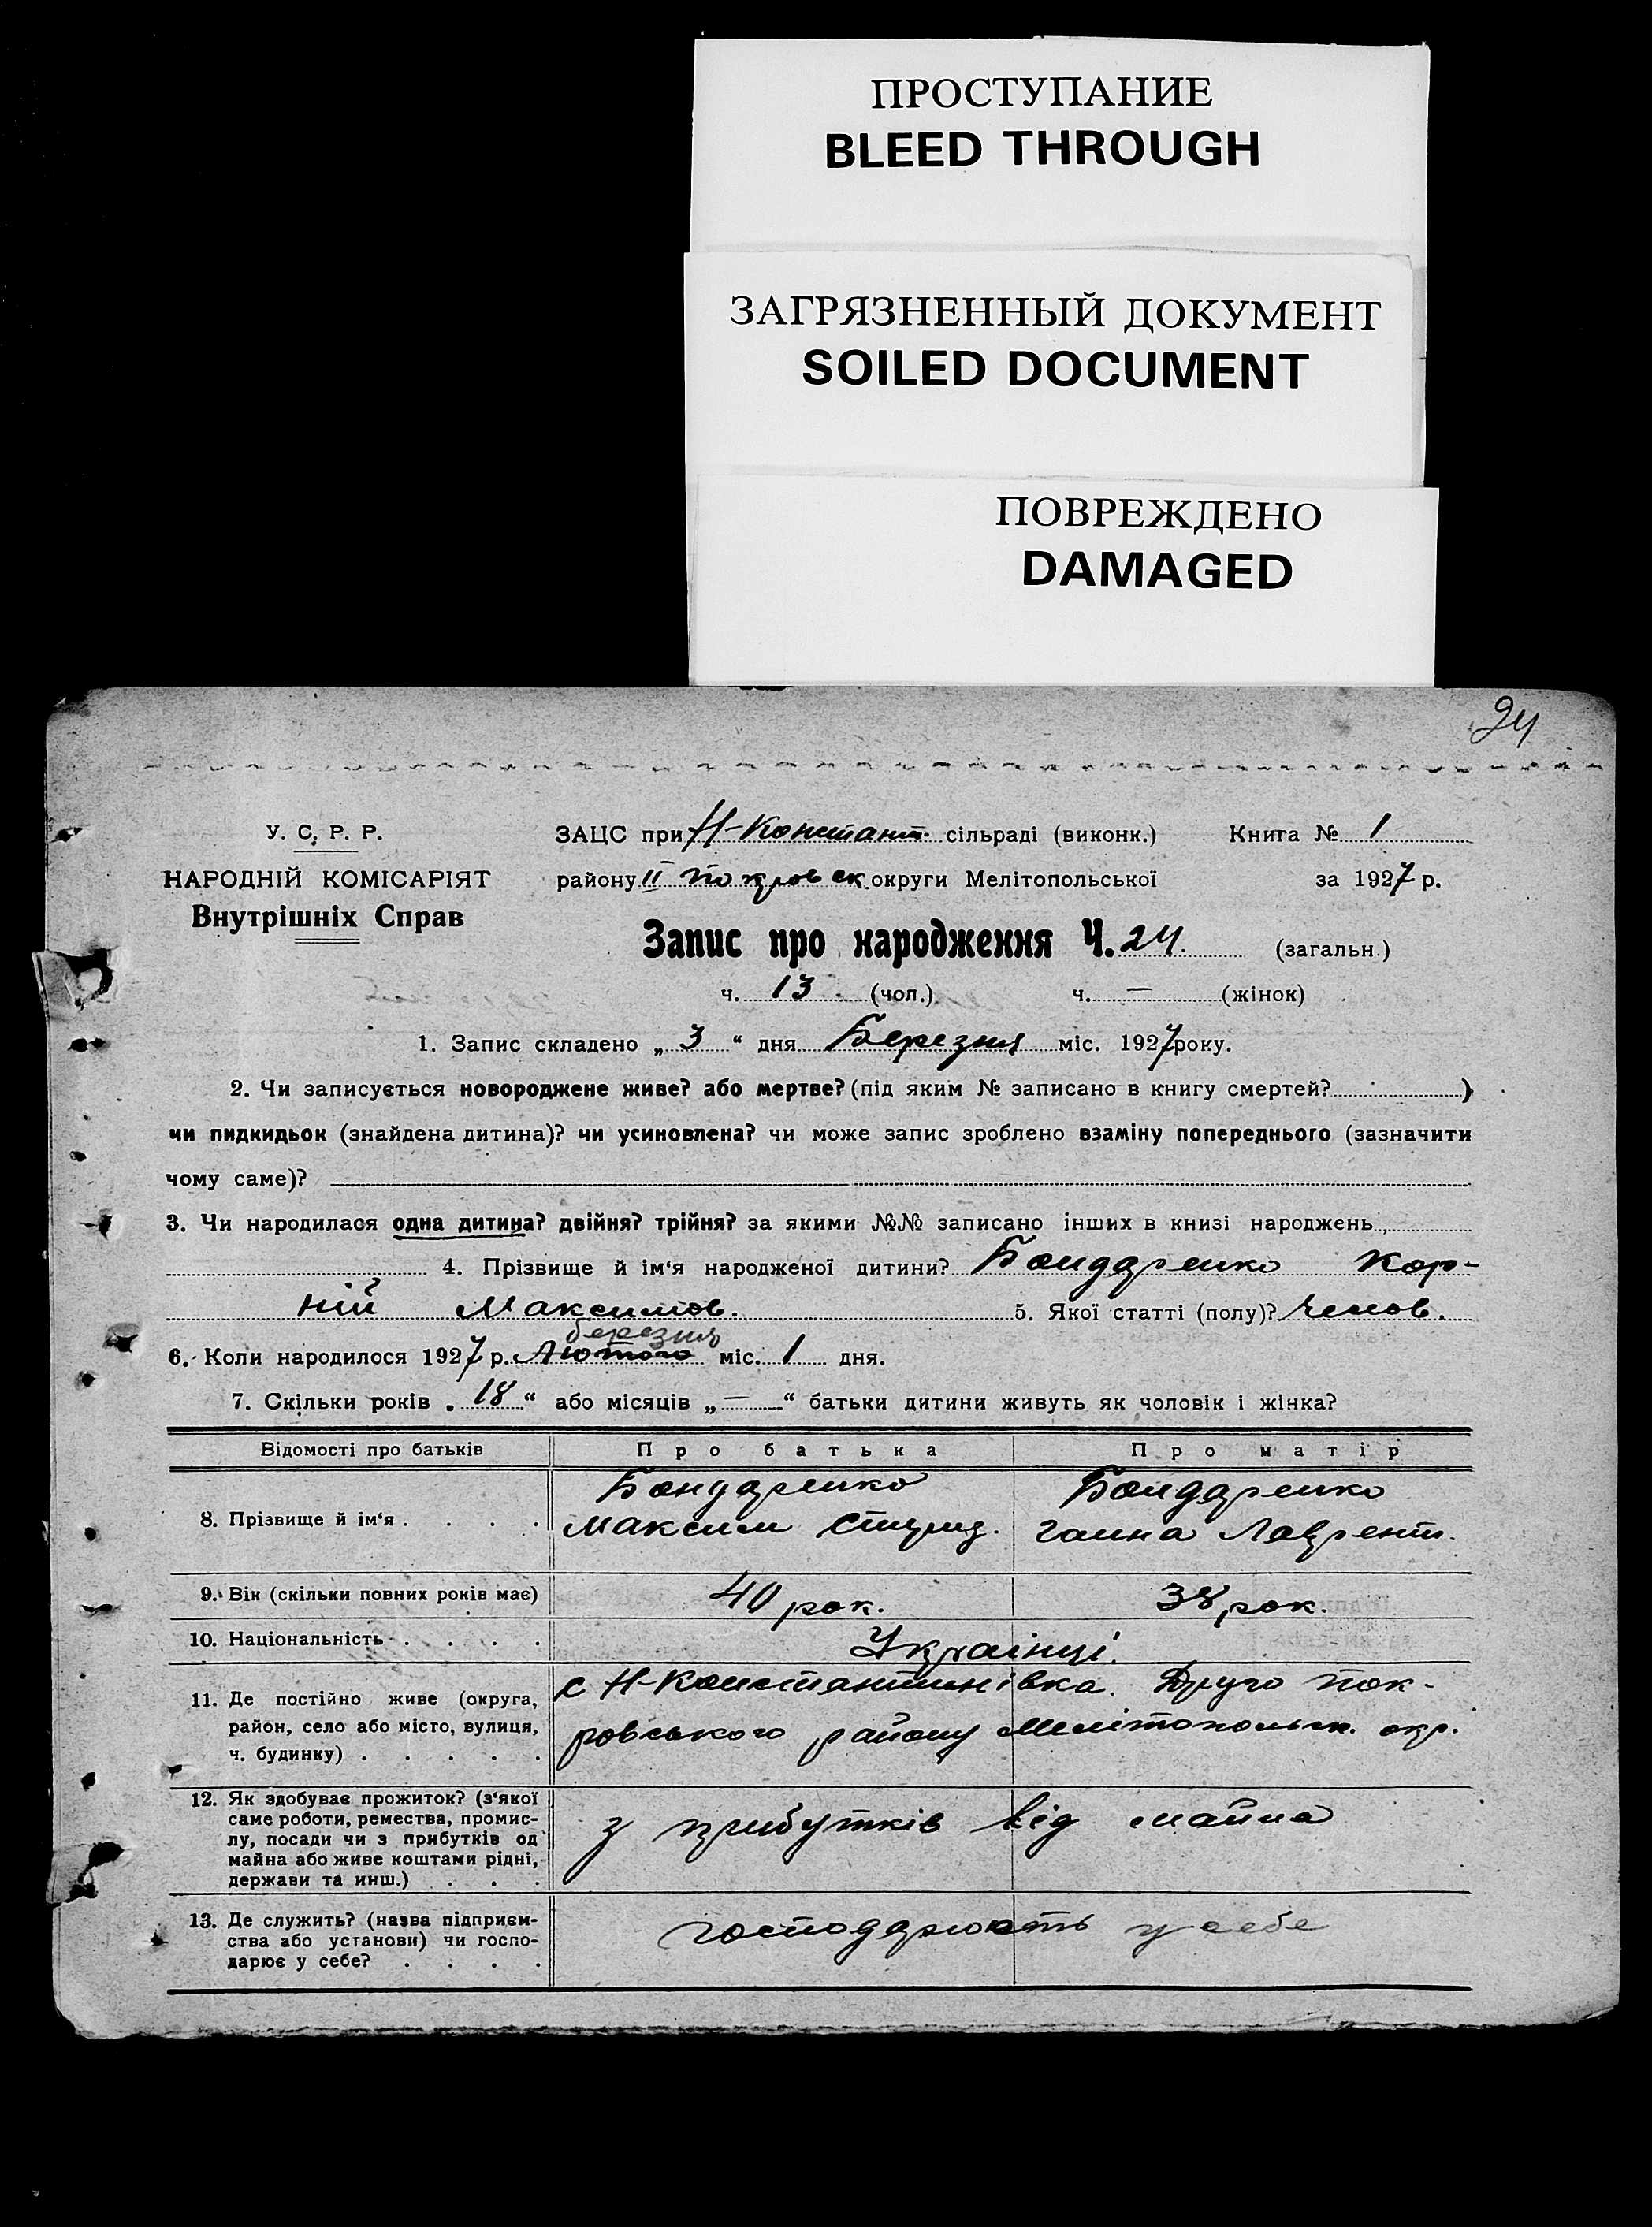 ПРОСТУПАНИЕ
BLEED THROUGH
ЗАГРЯЗНЕННЫЙ ДОКУМЕНТ
SOILED DOCUMENT
ПОВРЕЖДЕНО
DAMAGED
24
У. С. Р. Р.
НАРОДНІЙ КОМІСАРІЯТ
Внутрішніх Справ
ЗАЦС при Н-Констант. сільраді (виконк.) Книга № 1
району II Покровськ округи Мелітопольської за 1927 р.
Запис про народження Ч. 24. (загальн.)
ч. 13 (чол.) ч. — (жінок)
1. Запис складено „ 3 “ дня Березня міс. 1927 року.
2. Чи записується новороджене живе? або мертве? (під яким № записано в книгу смертей? )
чи пидкидьок (знайдена дитина)? чи усиновлена? чи може запис зроблено взаміну попереднього (зазначити
чому саме)?
3. Чи народилася одна дитина? двійня? трійня? за якими №№ записано інших в книзі народжень
4. Прізвище й ім'я народженої дитини? Бондаренко Кор-
ній Максимов. 5. Якої статті (полу)? Чолов.
березня
6. Коли народилося 1927 р. Лютого міс. 1 дня.
7. Скільки років „ 18 “ або місяців „ — “ батьки дитини живуть як чоловік і жінка?
Відомості про батьків Про батька Про матір
8. Прізвище й ім'я . . . .
Бондаренко Бондаренко
Максим Ганна Лаврент.
9. Вік (скільки повних років має) 40 рок. 38 рок.
10. Національність . . . . Українці.
11. Де постійно живе (округа,
район, село або місто, вулиця,
ч. будинку) . . . . .
с Н-Константинівка. Друго Пок-
ровського району Мелітопольск. окр.
12. Як здобуває прожиток? (з'якої
саме роботи, ремества, промис-
лу, посади чи з прибутків од
майна або живе коштами рідні,
держави та инш.) . . .
з прибутків від майна
13. Де служить? (назва підприєм-
ства або установи) чи госпо-
дарює у себе? . . . .
господарюють у себе